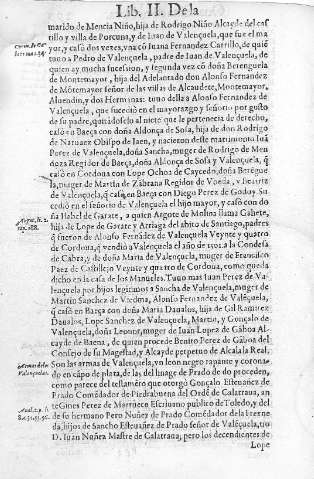 Lib. II. De la
marido de Mencia Niño, hija de Rodrigo Niño Alcayde del cas
tillo y villa de Porcuna, y de Iuan de Valençuela, que fue el ma
yor, y casò dos vezes, vna cõ Iuana Fernandez Carrillo, de quiẽ
tuuo a Pedro de Valençuela, padre de Iuan de Valençuela, de
quien ay mucha sucession, y segunda vez cõ doña Berenguela
de Montemayor, hija del Adelantado don Alonso Fernandez
de Mõtemayor señor de las villas de Alcaudete, Montemayor,
Aluendin, y dos Hermanas: tuuo della a Alonso Fernandez de
Valençuela, que sucediò en el mayorazgo y señorio por gusto
de su padre, quitãdoselo al nieto que le pertenecia de derecho,
casò en Baeça con doña Aldonça de Sosa, hija de don Rodrigo
de Naruaez Obispo de Iaen, y nacieron deste matrimonio Iuã
Perez de Valençuela, doña Sancha, muger de Rodrigo de Men
doza Regidor de Baeça, doña Aldonça de Sosa y Valençuela, q̃
casò en Cordoua con Lope Ochoa de Caycedo, doña Berẽgue
la, muger de Martin de Zãbrana Regidor de Vbeda, y Beatriz
de Valençuela, q̃ casò en Baeça con Diego Perez de Godoy. Su
cediò en el señorio de Valençuela el hijo mayor, y casò con do
ña Isabel de Garate, a quien Argote de Molina llama Gahete,
hija de Lope de Garate y Arriaga del abito de Santiago, padres
q̃ fueron de Alonso Fernãdez de Valençuela Veynte y quatro
de Cordoua, q̃ vendiò a Valençuela el año de a la Condesa
de Cabra, y de doña Maria de Valençuela, muger de Fransisco
Paez de Castillejo Veynte y quatro de Cordoua, como queda
dicho en la casa de los Manueles. Tuuo mas Iuan Perez de Va
lençuela por hijos legitimos a Sancha de Valençuela, muger de
Martin Sanchez de Vaedma, Alonso Fernandez de Valẽçuela,
q̃ casò en Baeça con doña Maria Daualos, hija de Gil Ramirez
Daualos, Lope Sanchez de Valençuela, Martin, y Gonçalo de
Valençuela, doña Leonor, muger de Iuan Lopez de Gãboa Al
cayde de Baena, de quien procede Benito Perez de Gãboa del
Consejo de su Magestad, y Alcayde perpetuo de Alcala la Real.
Son las armas de Valençuela, vn leon negro rapante y corona
do en cãpo de plata, de las del linage de Prado de do proceden,
como parece del testamẽto que otorgò Gonçalo Esteuanez de
Prado Comẽdador de Piedrabuena del Ordẽ de Calatraua, an
te Gines Perez de Marrueco Escriuano publico de Toledo, y del
de su hermano Pero Nuñez de Prado Comẽdador de la
da, hijos de Sancho Esteuañez de Prado señor de Valẽçuela, tio
D. Iuan Nuñez Mastre de Calatraua, pero los decendientes de
Lope
Armas de los
Valençuelas.